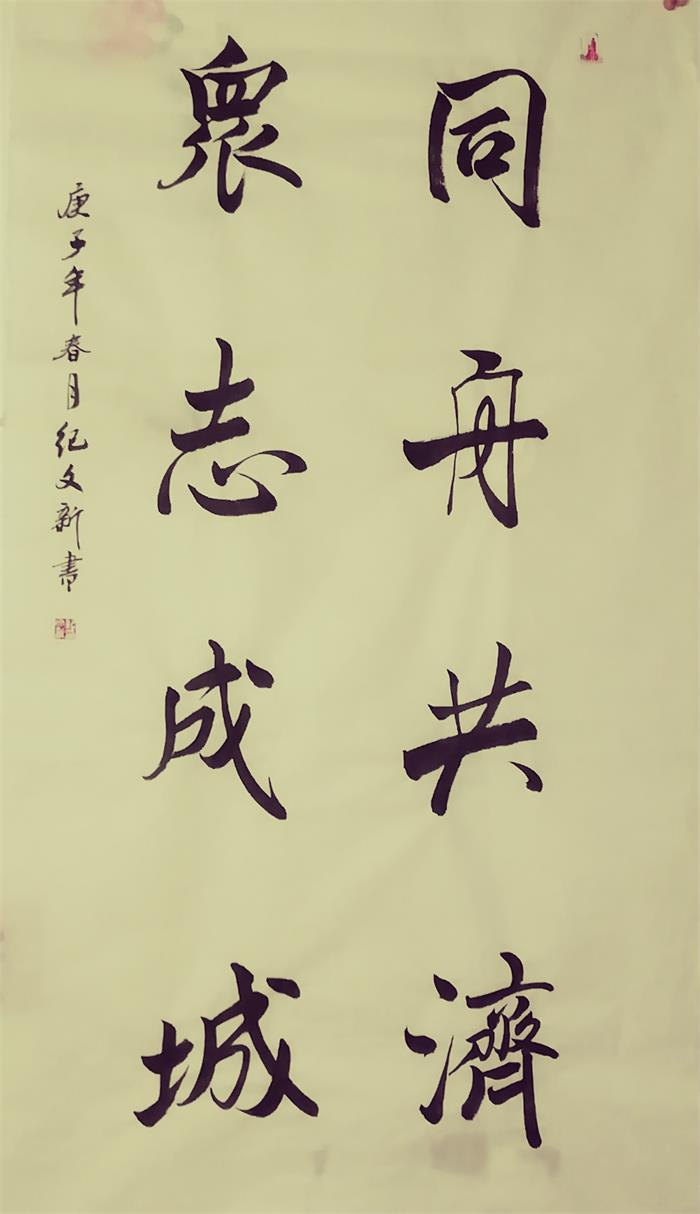 同舟共濟
眾志成城
庚子年春月纪文新書